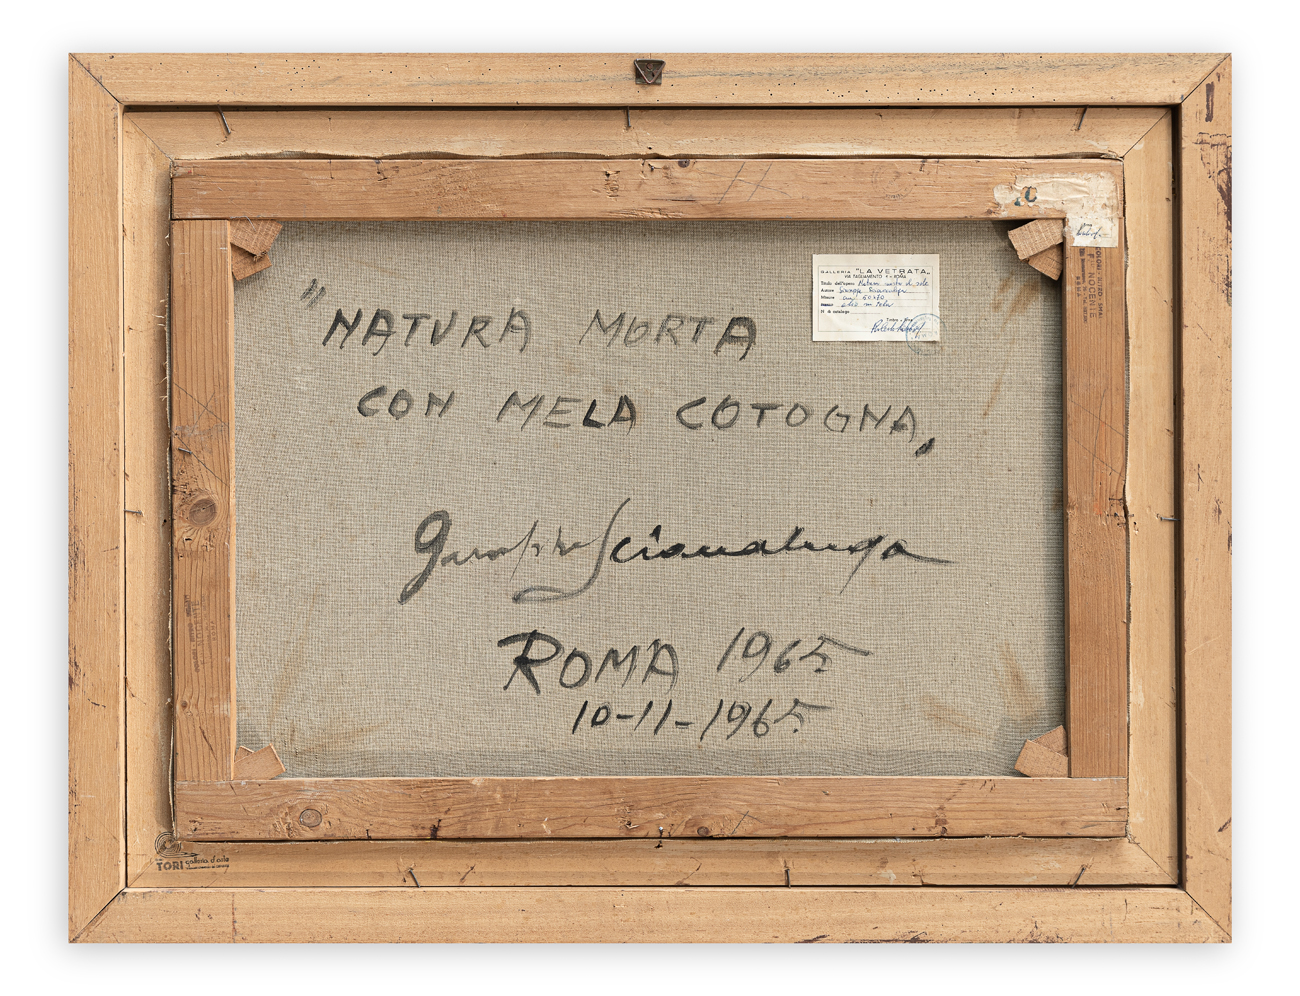 GALLERIA "LA VETRATA„
VIA TAGLIAMENTO ROMA
Titolo dell'opera Natura morta
Autore Giuseppe Scianaluga
Misure cm. 50x70
olio su tela
N. di catalogo
Timbro - Firma
COLORI
F. NOCENTE
"NATURA MORTA
CON MELA COTOGNA„
Giuseppe Scianaluga
ROMA 1965
10-11-1965
TORI galleria d'arte